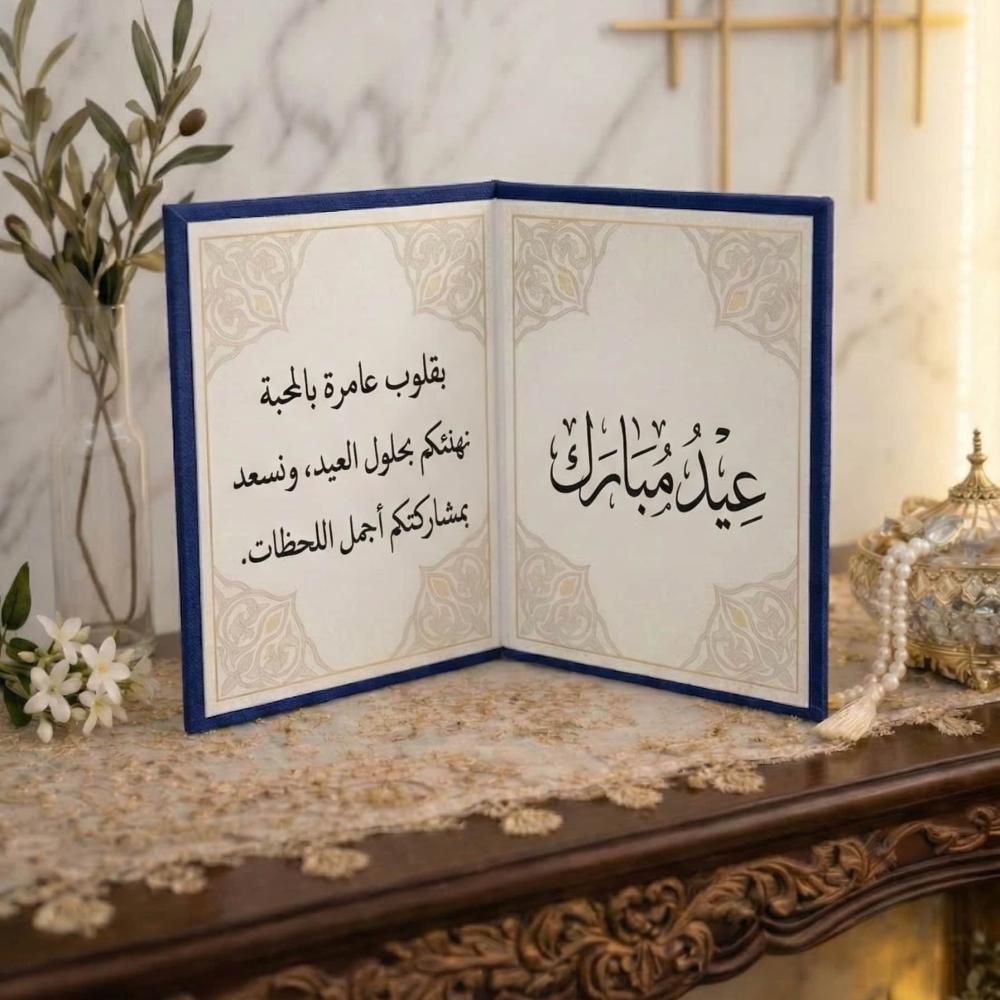 عِيْدُ مُبَارَك
بقلوب عامرة بالمحبة
نهنئكم بحلول العيد، ونسعد
بمشاركتكم أجمل اللحظات.